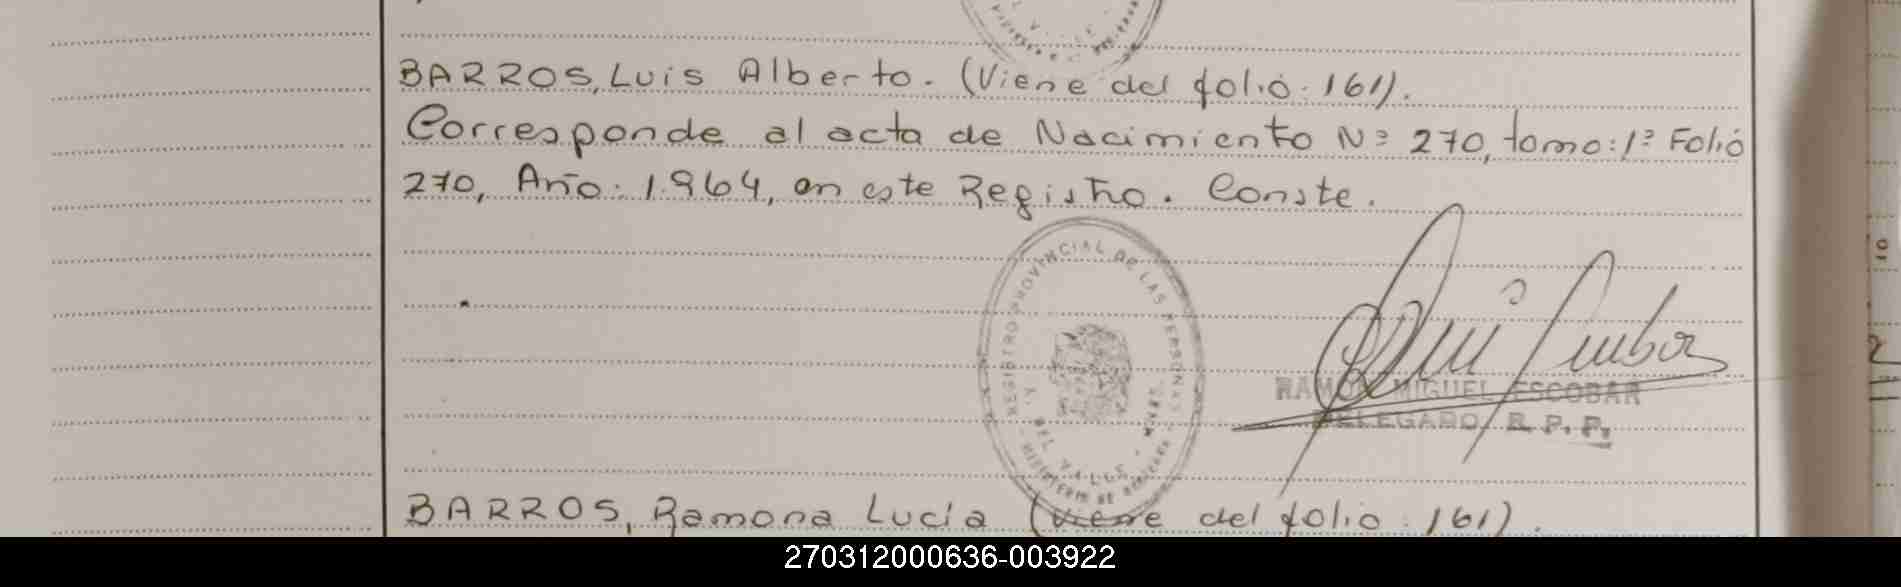 BARROS, Luis Alberto. (Viene del folio: 161).
Corresponde al acta de Nacimiento Nº 270, tomo: 1º Folio
270, Año: 1.964, en este Registro. Conste.
REGISTRO PROVINCIAL DE LAS PERSONAS
DEL VALLE
RAMON MIGUEL ESCOBAR
DELEGADO R. P. P.
BARROS, Ramona Lucia (viene del folio: 161).
270312000636-003922